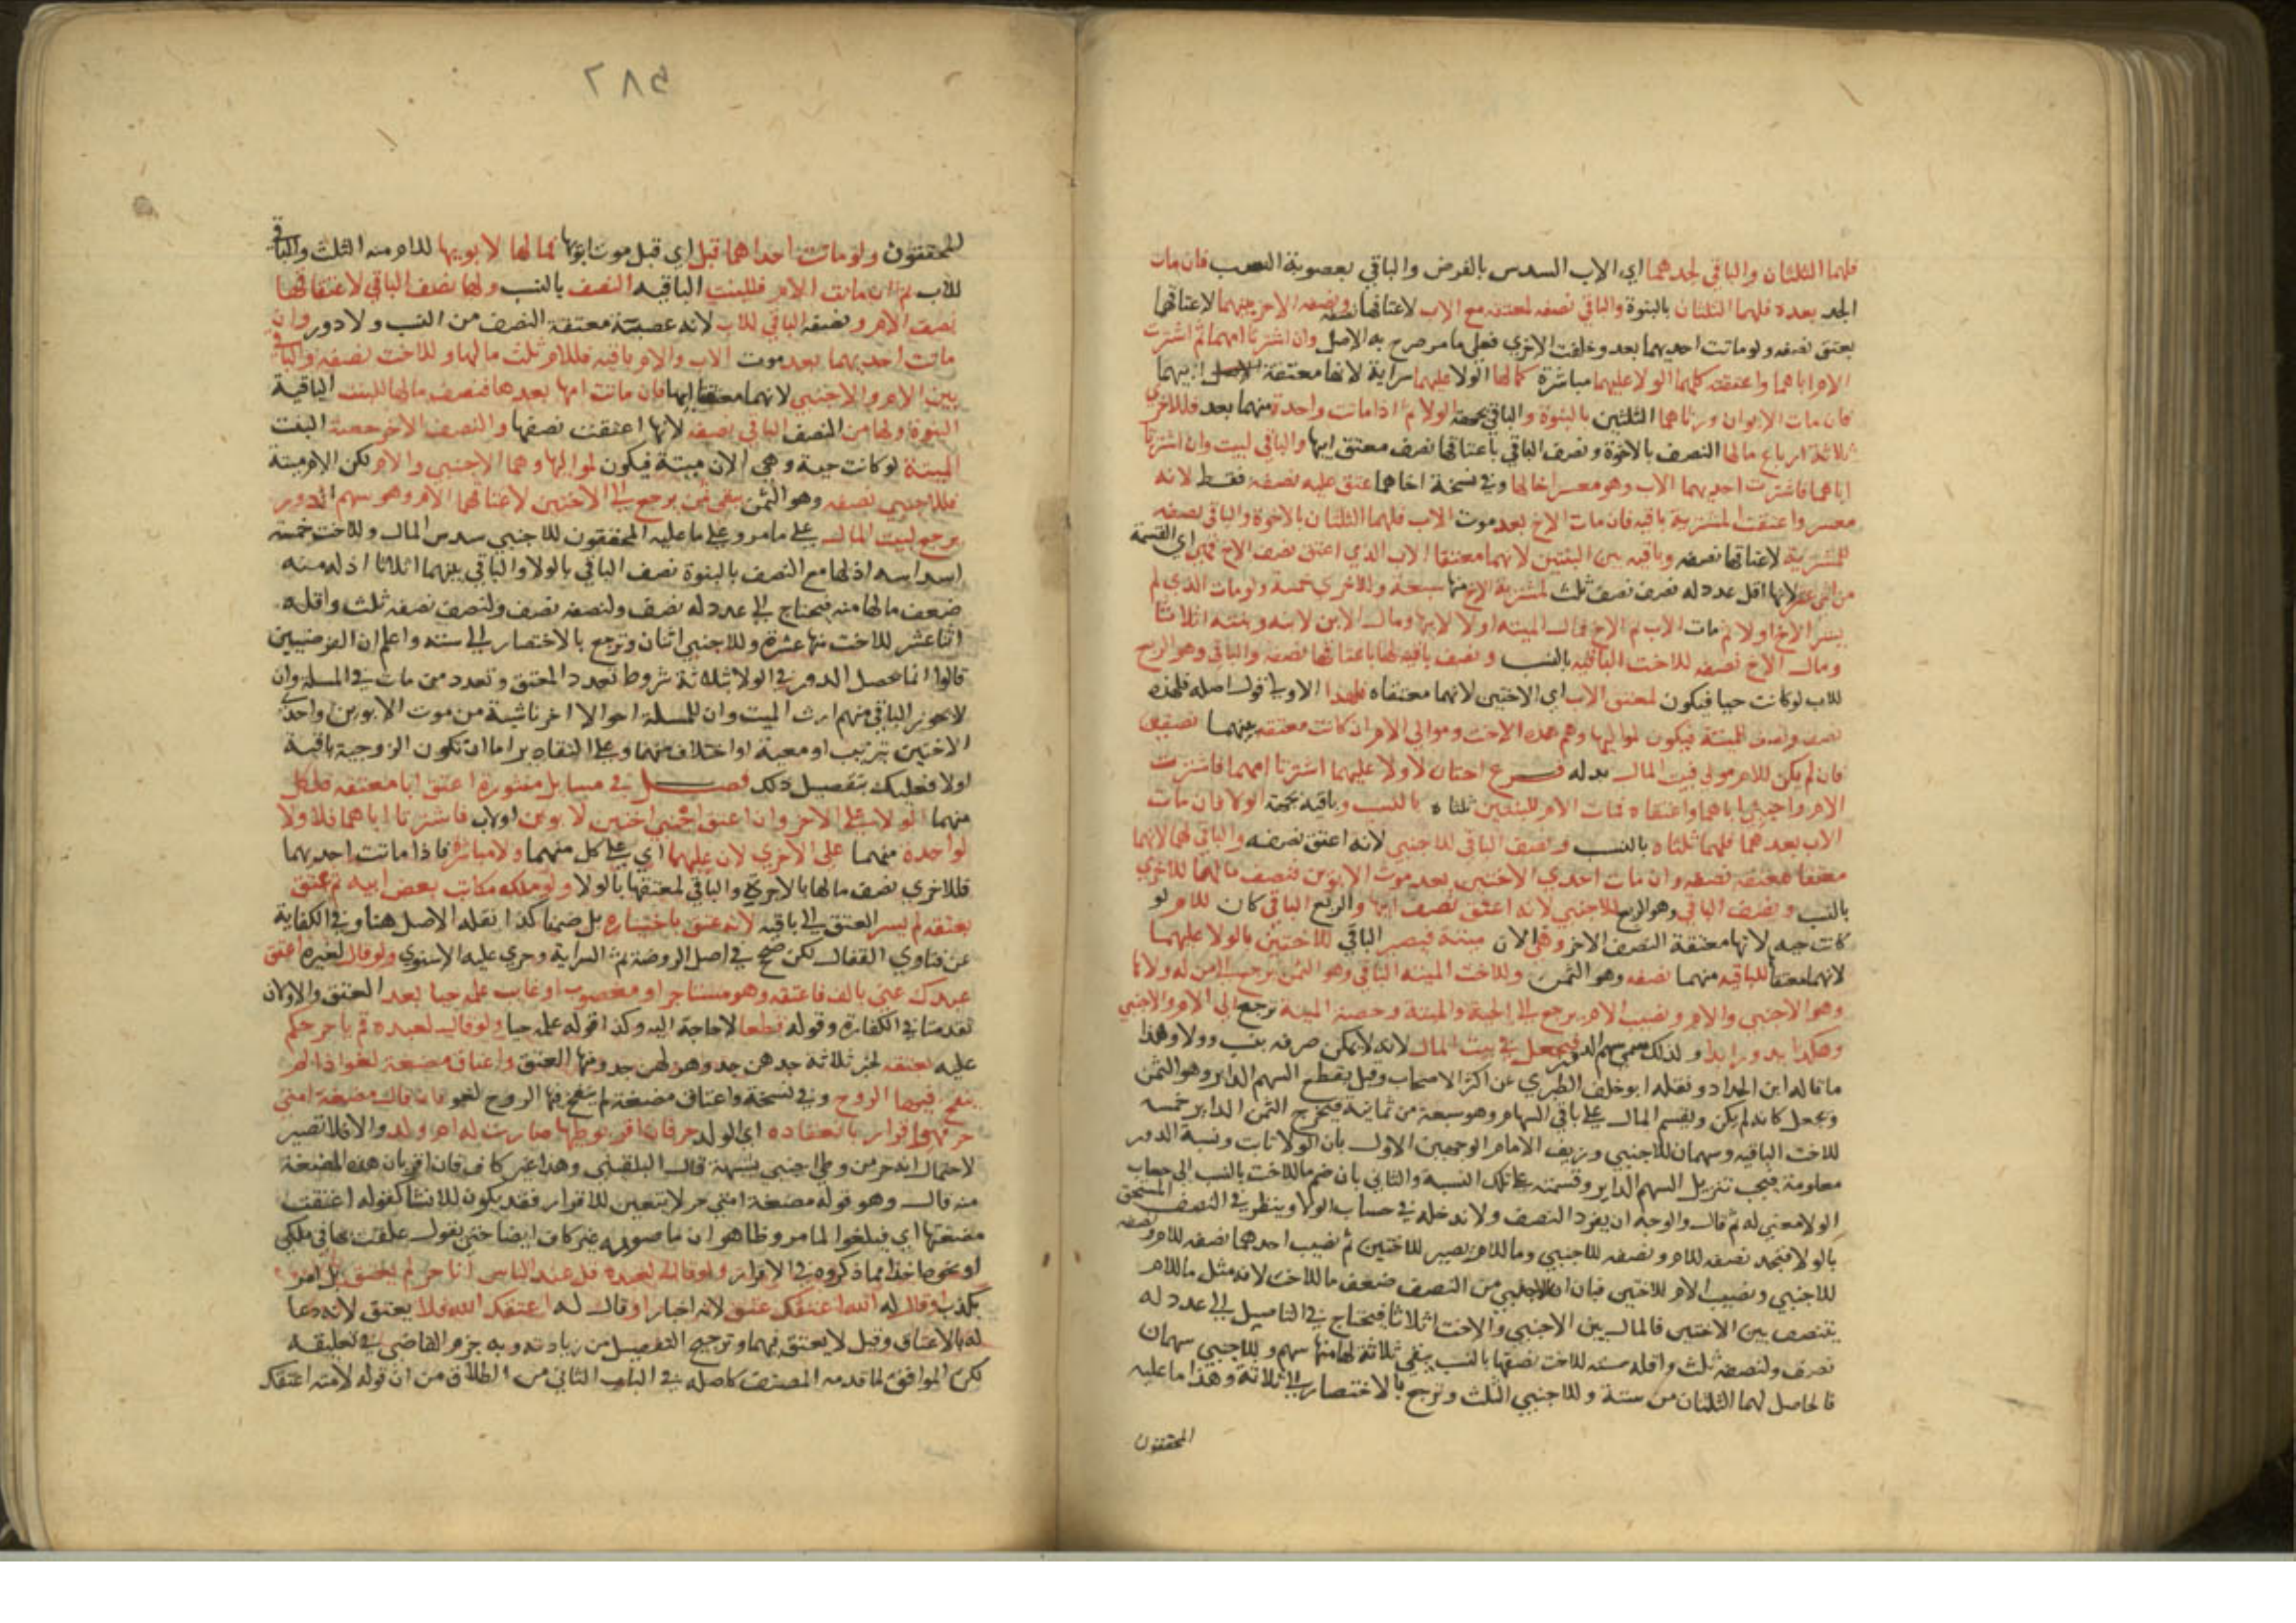 فلهما الثلثان والباقي لجدهما اي الاب السدس بالفرض والباقي بعصوبة النسب فان مات
الجد بعده فلهما الثلثان بالبنوة والباقي نصفه لمعتقه مع الاب لاعتاقهما نصفه ونصفه الاخر بينهما لاعتاقهما
معتق نصفه ولو ماتت احديهما بعد وخلفت الاخري فعلي ما مر صرح به الاصل وان اشترتا امهما ثم اشترت
الام اباهما واعتقته فلهما الولا عليهما مباشرة كما لها الولا عليهما سراية لانها معتقة ابيهما
فان مات الابوان ورثاهما الثلثين بالبنوة والباقي بجهة الولا ثم اذا ماتت واحدة منهما بعد فللاخري
ثلاثة ارباع مالها النصف بالاخوة ونصف الباقي باعتاقها نصف معتق ابيها والباقي لبيت وان اشترتا
اباهما فاشترت احديهما الاب وهو معسر اخا لها وفي نسخة اخاهما عتق عليه نصفه فقط لانه
معسر واعتقت المشترية باقيه فان مات الاخ بعد موت الاب فلهما الثلثان بالاخوة والباقي نصفه
للمشترية لاعتاقها نصفه وباقيه بين البنتين لانهما معتقتا الاب الذي اعتق نصف الاخ فهي اي القسمة
من اثني عشر لانها اقل عدد له نصف نصف ثلث لمشترية الاخ منها سبعة وللاخري خمسة ولو مات الذي لم
يشتر الاخ اولا ثم مات الاب ثم الاخ فمال الميتة اولا لابيها ومال الاب لابنه وبنته اثلاثا
ومال الاخ نصفه للاخت الباقية بالنسب ونصف باقيه لها باعتاقها نصفه والباقي وهو الربع
للاب لو كانت حيا فيكون لمعتق الاب اي الاختين لانهما معتقتاه فلهذا الاولي قول اصله فلهذه
نصف ونصف للميتة فيكون لمواليها وهم هذه الاخت وموالي الام ان كانت معتقة بينهما نصفين
فان لم يكن للام مولي فبيت المال بدله فرع اختان لا ولا عليهما اشترتا امهما فاشترت
الام واجنبي اباهما واعتقاه فمات الام فللبنتين ثلثاه بالنسب وباقيه بجهة الولا فان مات
الاب بعدهما فلهما ثلثاه بالنسب ونصف الباقي للاجنبي لانه اعتق نصفه والباقي لهما لانهما
معتقتا معتقة نصفه وان مات احدي الاختين بعد موت الابوين فنصف مالها للاخري
بالنسب ونصف الباقي وهو الربع للاجنبي لانه اعتق نصف ابيها والربع الباقي كان للام لو
كانت حيه لانها معتقة النصف الاخر وهي الان ميتة فيصير الباقي للاختين بالولا عليهما
لانهما معتقتا للباقيه منهما نصفه وهو الثمن وللاخت الميتة الباقي وهو الثمن يرجع الي من له ولاها
وهو الاجنبي والام ونصيب الام يرجع الي الحية والميتة وحصة الميتة ترجع الي الام والاجنبي
وهكذا يدور ابدا ولذلك سمي سهم الدور فيجعل في بيت المال لانه لا يمكن صرفه بنسب وولا وهذا
ما قاله ابن الحداد ونقله ابو خلف الطبري عن اكثر الاصحاب وقيل يقطع السهم الداير وهو الثمن
ويجعل كانه لم يكن ويقسم المال علي باقي السهام وهو سبعة من ثمانية فيخرج الثمن الداير خمسه
للاخت الباقيه وسهمان للاجنبي وزيف الامام الوجهين الاول بان الولا ثابت ونسبة الدور
معلومة فيجب تنزيل السهم الداير وقسمته علي تلك النسبة والثاني بان ضم ما للاخت بالنسب الي حساب
الولا لا معني له ثم قال والوجه ان يفرد النصف ولا ندخله في حساب الولا وينظر في النصف المستحق
بالولا فنجد نصفه للام ونصفه للاجنبي وما للام يصير للاختين ثم نصيب احدهما نصفه للام ونصفه
للاجنبي ونصيب الام للاختين فبان ان للاجنبي من النصف ضعف ما للاخت لانه مثل ما للام
يتنصف بين الاختين فالمال بين الاجنبي والاخت اثلاثا فيحتاج في التاصيل الي عدد له
نصف ولنصفه ثلث واقله سته للاخت نصفها بالنسب يبقي ثلاثة لها منها سهم وللاجنبي سهمان
فالحاصل لهما الثلثان من ستة وللاجنبي الثلث وترجع بالاختصار الي ثلاثة وهذا ما عليه
المحققون
٢٨٥
المحققون ولو ماتت احداهما قبل اي قبل موت ابويها فمالها لابويها للام منه الثلث والباقي
للاب ثم ان ماتت الام فللبنت الباقيه النصف بالنسب ولها نصف الباقي لاعتاقها
نصف الام ونصفه الباقي للاب لانه عصبة معتقة النصف من النسب ولا دور وان
ماتت احديهما بعد موت الاب والام باقيه فللام ثلث مالها وللاخت نصفه والباقي
بين الام والاجنبي لانهما معتقا ابيها فان ماتت امها بعدها فنصف مالها للبنت الباقية
بالبنوة ولها من النصف الباقي نصفه لانها اعتقت نصفها والنصف الاخر حصة البنت
الميتة لو كانت حية وهي الان ميتة فيكون لمواليها وهما الاجنبي والام لكن الام ميتة
فللاجنبي نصفه وهو الثمن يبقي ثمن يرجع الي الاختين لاعتاقهما الام وهو سهم الدور
يرجع لبيت المال علي ما مر وعلي ما عليه المحققون للاجنبي سدس المال وللاخت خمسة
اسداسه اذ لها مع النصف بالبنوة نصف الباقي بالولا والباقي بينهما اثلاثا اذ له منه
ضعف مالها منه فيحتاج الي عدد له نصف ولنصفه نصف ولنصف نصفه ثلث واقله
اثنا عشر للاخت منها عشرة وللاجنبي اثنان وترجع بالاختصار الي ستة واعلم ان الفرضيين
قالوا انما يحصل الدور في الولا بثلاثة شروط تعدد المعتق وتعدد من مات في المسلة وان
لا يحوز الباقي منهم ارث الميت وان للمسلة احوالا اخر ناشية من موت الابوين واحد
الاختين بترتيب او معية او اختلاف منهما وعلي التقادير اما ان تكون الزوجية باقية
اولا فعليك بتفصيل ذلك فصل في مسايل منثورة اعتق ابا معتقه فلكل
منهما الولا علي الاخر وان اعتق اجنبي اختين لابوين او لاب فاشترتا اباهما فلا ولا
لواحدة منهما علي الاخري لان عليهما اي علي كل منهما ولا مباشرة فاذا ماتت احديهما
فللاخري نصف مالها بالاخوة والباقي لمعتقها بالولا ولو ملك مكاتب بعض ابيه ثم عتق
بعتقه لم يسر العتق الي باقيه لانه عتق باختياره بل ضمنا كذا نقله الاصل هنا وفي الكفاية
عن فتاوي القفال لكن صحح في اصل الروضة ثم السراية وجري عليه الاسنوي ولو قال لغيره اعتق
عبدك عني بالف فاعتقه وهو مستاجر او مغصوب او غايب علم حيا بعد العتق والاولان
تقدمتا في الكفارة وقوله قطعا لا حاجة اليه وكذا قوله علم حيا ولو قال لعبده قم يا حر حكم
عليه بعتقه لخبر ثلاثة جدهن جد وهزلهن جد ومنها العتق واعتاق مضغة لغو اذا لم
ينفخ فيها الروح وفي نسخة واعتاق مضغة لم ينفخ فيها الروح لغو فان قال مضغة امتي
حر فهو اقرار بانعقاده اي الولد حر فان اقر بوطيها صارت له ام ولد والا فلا تصير
لاحتمال انه حر من وطي اجنبي بشبهة قال البلقيني وهذا غير كاف فان اقر بان هذه المضغة
منه قال وهو قوله مضغة امتي حر لا يتعين للاقرار فقد يكون للانشا كقوله اعتقت
مضغتها اي فيلغوا لما مر وظاهر ان ما صوبه غير كاف ايضا حتي يقول علقت بها في ملكي
او نحوه اخذا مما ذكروه في الاقرار ولو قال لعبده قل عند الناس انا حر لم يعتق بل امر
بكذب او قال له الله اعتقك عتق لانه اخبار او قال له اعتقك الله فلا يعتق لانه دعا
له بالاعتاق وقيل لا يعتق فيهما وترجيح التفصيل من زيادته وبه جزم القاضي في تعليقه
لكن الموافق لما قدمه المصنف كاصله في الباب الثاني من الطلاق من ان قوله لامته اعتقك